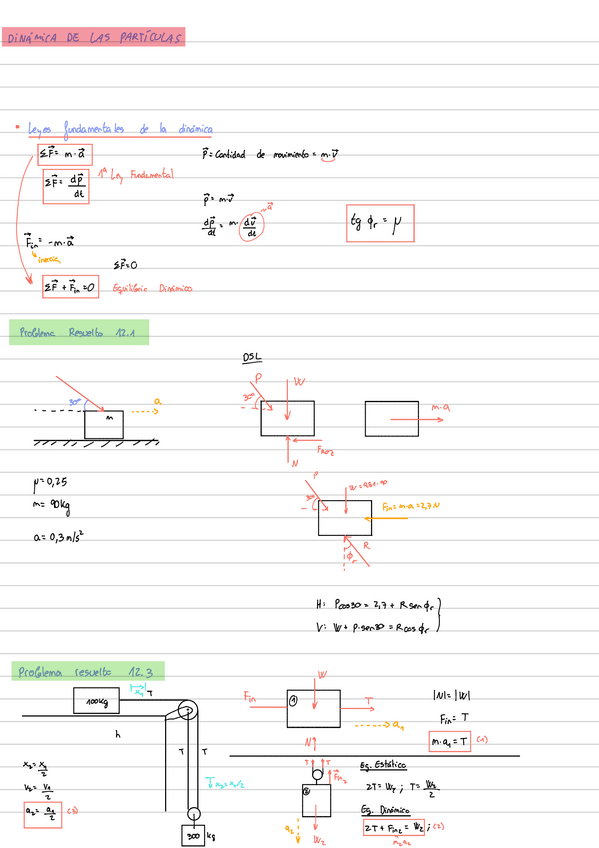 DINÁMICA DE LAS PARTÍCULAS
* Leyes fundamentales de la dinámica
ΣF⃗ = m·a⃗
p⃗ = Cantidad de movimiento = m·v⃗
ΣF⃗ = dp⃗/dt 1ª Ley Fundamental
p⃗ = m·v⃗
dp⃗/dt = m· dv⃗/dt → a⃗
tg φr = μ
F⃗in = -m·a⃗
inercia
ΣF⃗=0
ΣF⃗ + F⃗in = 0 Equilibrio Dinámico
Problema Resuelto 12.1
DSL
30º
m
a
P
W
30º
Froz
N
m·a
μ = 0,25
m = 90kg
a = 0,3 m/s²
P
30
W = 9,81·90
Fin = m·a = 2,7 N
R
φr
H: P cos30 = 2,7 + R sen φr
V: W + P·sen30 = R cos φr
Problema resuelto 12.3
100kg
x₁
T
h
T
T
x₂ = x₁/2
300 kg
x₂ = x₁/2
v₂ = v₁/2
a₂ = a₁/2 (3)
Fin
1
W
T
a₁
N
|N| = |W|
Fin = T
m·a₁ = T (1)
T
T
F⃗in₂
2
a₂
W₂
Eq. Estático
2T = W₂ ; T = W₂/2
Eq. Dinámico
2T + Fin₂ = W₂ ; (2)
m₂a₂